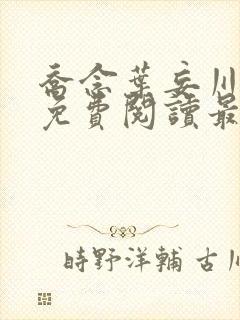 喬念葉妄川
免費閱讀最
時野洋輔 古川